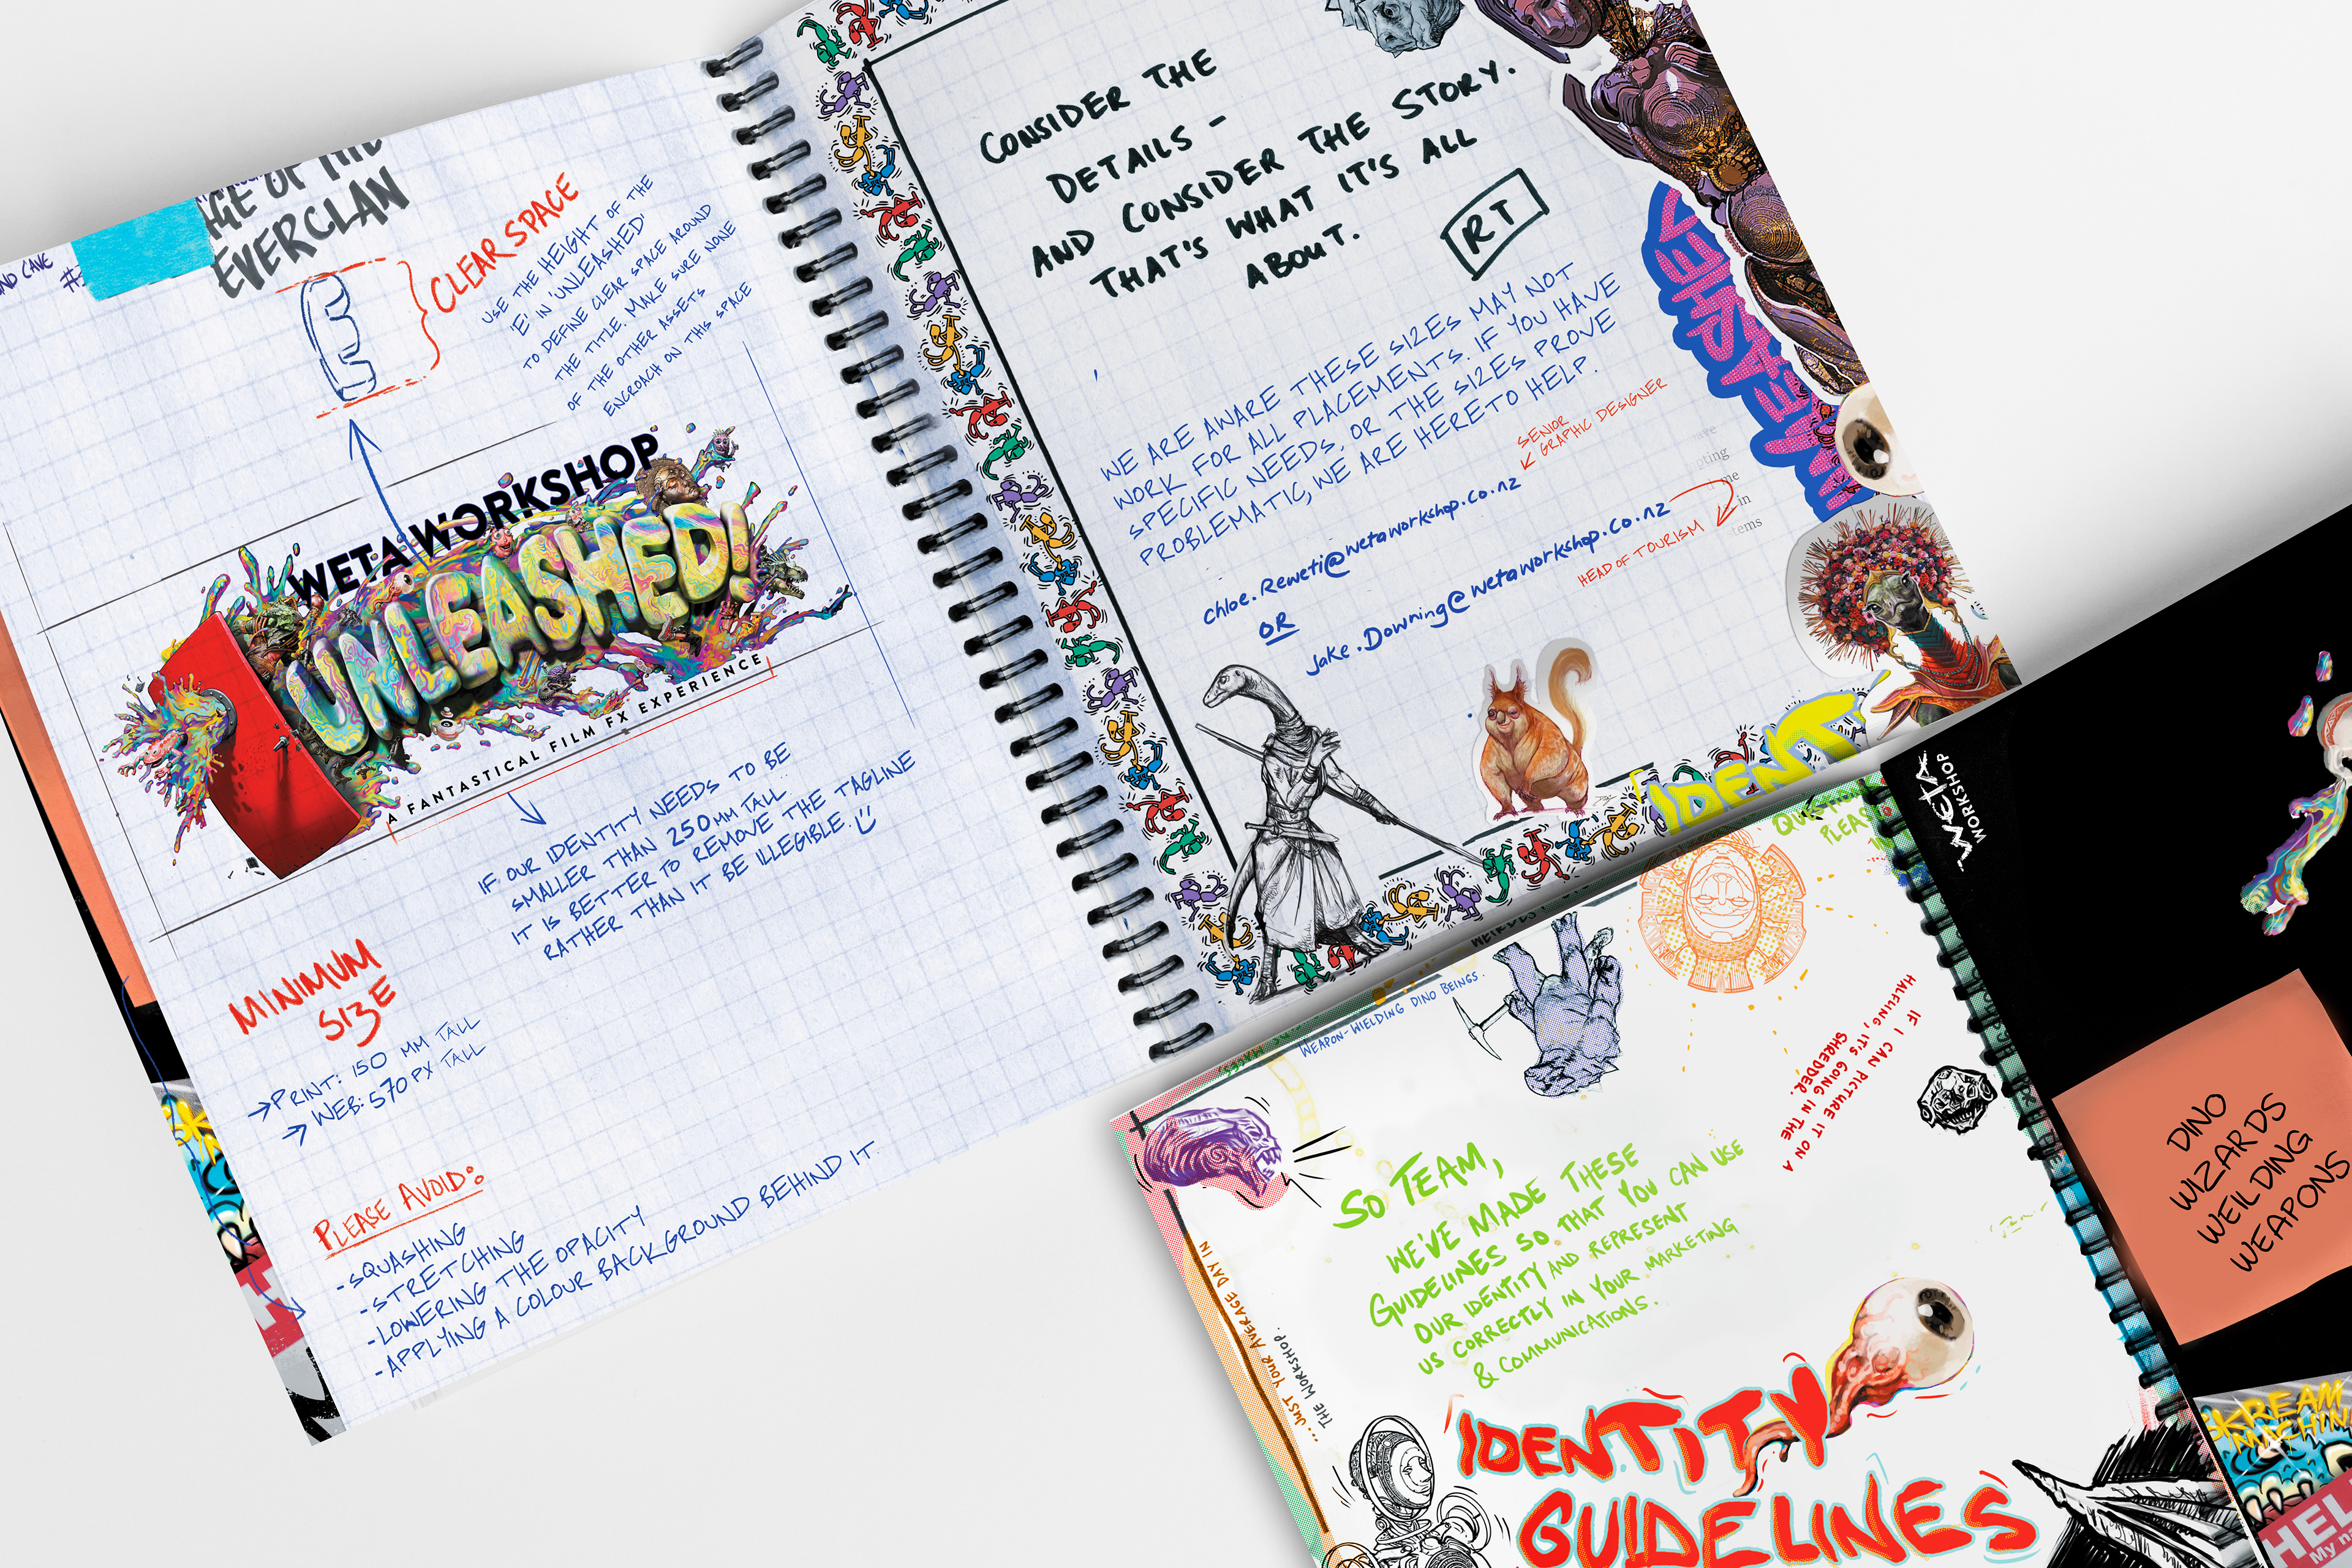 AGE OF THE
EVERCLAN
AND CAVE
CLEAR SPACE
USE THE HEIGHT OF THE
'E' IN 'UNLEASHED'
TO DEFINE CLEAR SPACE AROUND
THE TITLE. MAKE SURE NONE
OF THE OTHER ASSETS
ENCROACH ON THIS SPACE
E
WETA WORKSHOP
UNLEASHED!
A FANTASTICAL FILM FX EXPERIENCE
IF OUR IDENTITY NEEDS TO BE
SMALLER THAN 250MM TALL
IT IS BETTER TO REMOVE THE TAGLINE
RATHER THAN IT BE ILLEGIBLE.
MINIMUM
SIZE
→PRINT: 150 MM TALL
→ WEB: 570 PX TALL
PLEASE AVOID:
-SQUASHING
-STRETCHING
-LOWERING THE OPACITY
-APPLYING A COLOUR BACKGROUND BEHIND IT.
CONSIDER THE
DETAILS -
AND CONSIDER THE STORY.
THAT'S WHAT IT'S ALL
ABOUT.
RT
WE ARE AWARE THESE SIZES MAY NOT
WORK FOR ALL PLACEMENTS. IF YOU HAVE
SPECIFIC NEEDS, OR THE SIZES PROVE
PROBLEMATIC, WE ARE HERE TO HELP.
SENIOR
GRAPHIC DESIGNER
chloe.Reweti@wetaworkshop.co.nz
OR
Jake.Downing@wetaworkshop.co.nz
HEAD OF TOURISM
pting
me
in
tems
IDENT
QUESTION
PLEAS
WETA
WORKSHOP
WEAPON-WIELDING DINO BEINGS.
IF I CAN PICTURE IT ON A
HALFLING, IT'S GOING IN THE
SHREDDER.
SO TEAM,
WE'VE MADE THESE
GUIDELINES SO THAT YOU CAN USE
OUR IDENTITY AND REPRESENT
US CORRECTLY IN YOUR MARKETING
& COMMUNICATIONS.
...JUST YOUR AVERAGE DAY IN
THE WORKSHOP.
IDENTITY
GUIDELINES
DINO
WIZARDS
WEILDING
WEAPONS
SKREAM
MACHIN
HEL
My